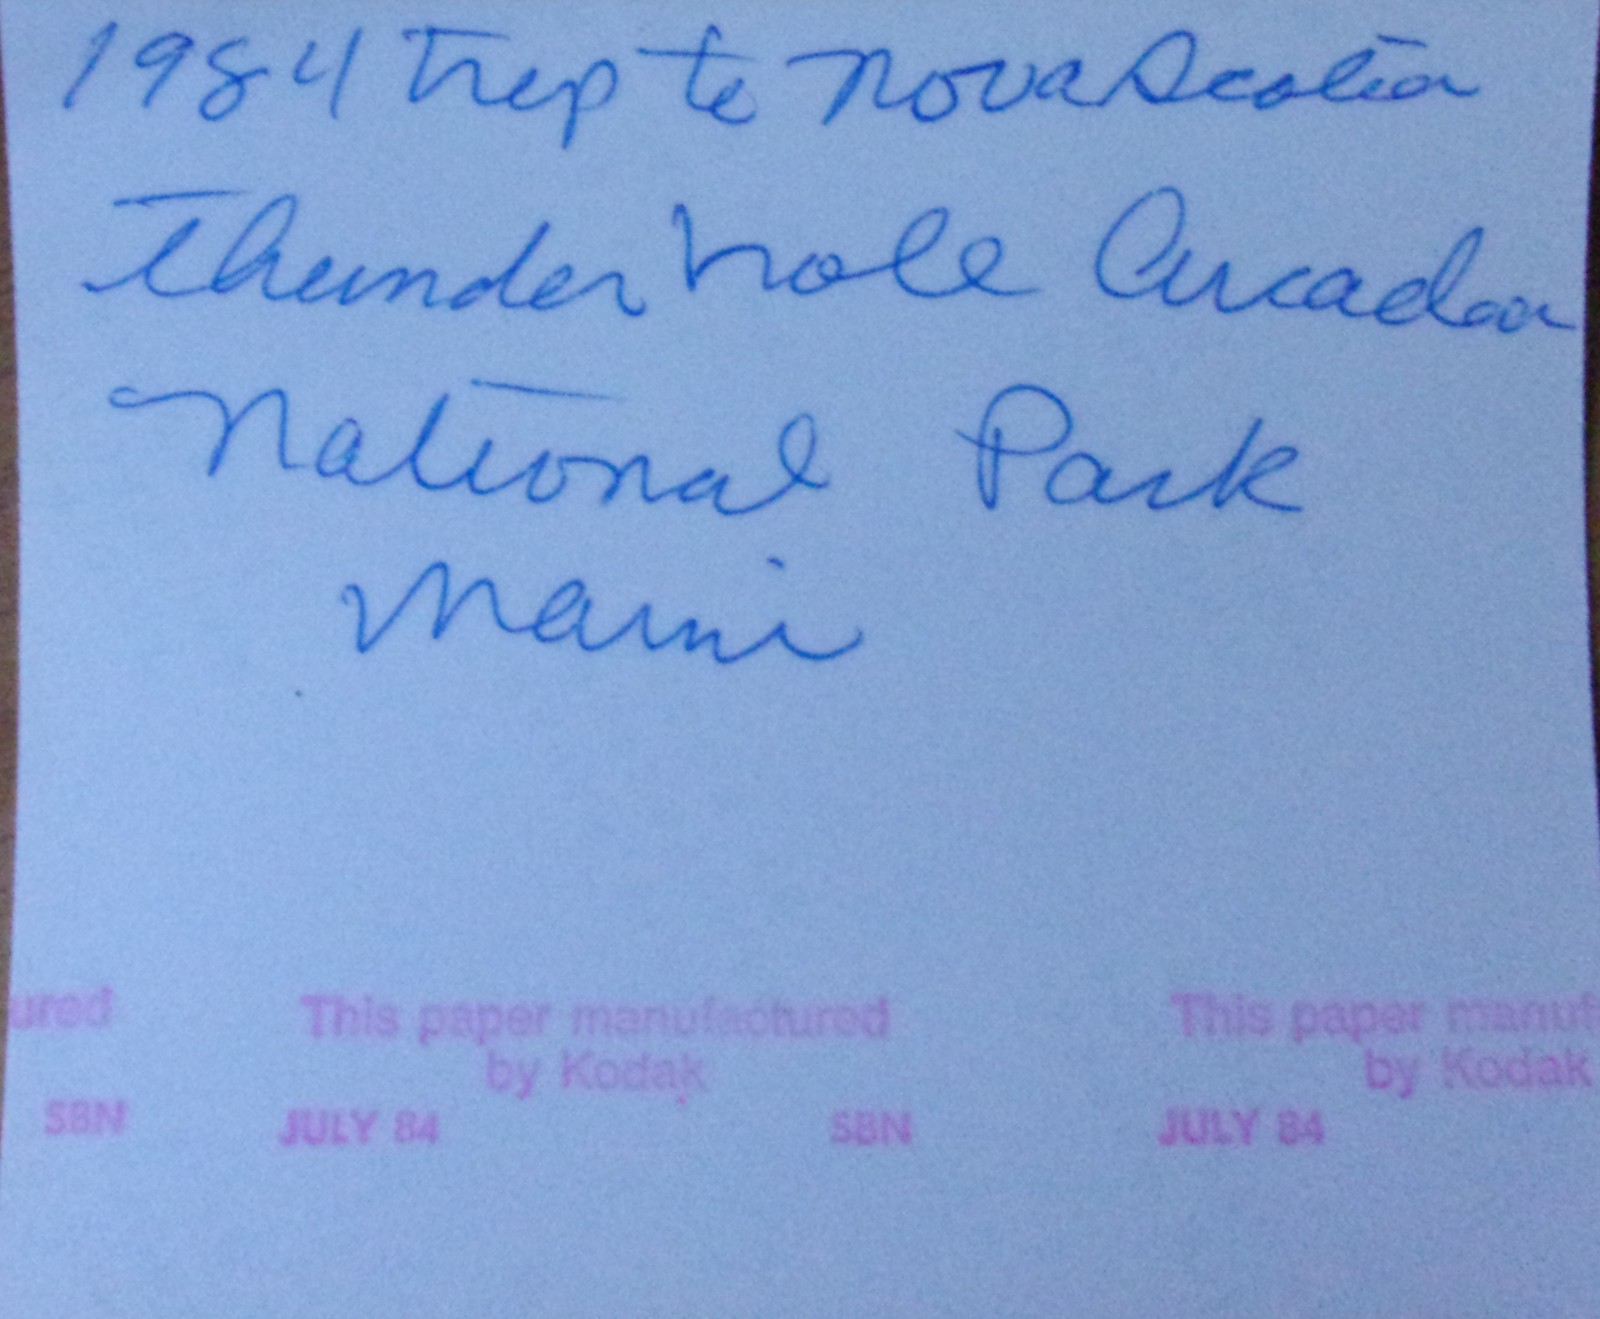 1984 Trip to Nova Scotia
Thunder hole Arcadia
National Park
Maine
ured This paper manufactured This paper manuf
by Kodak by Kodak
SBN JULY 84 SBN JULY 84